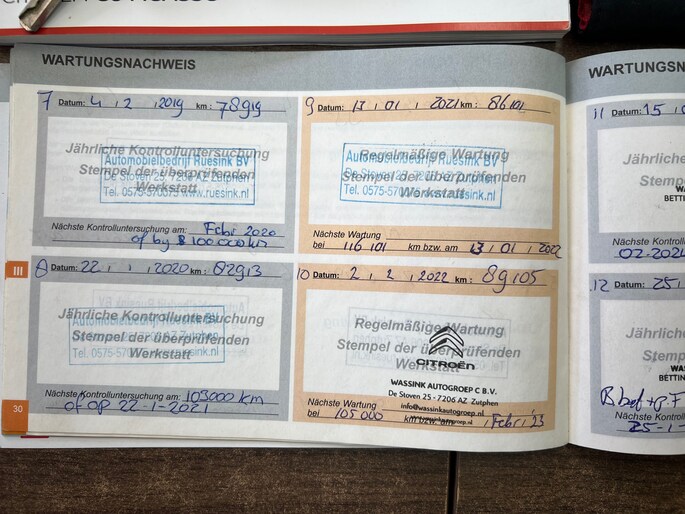 WARTUNGSNACHWEIS
7 Datum: 4 , 2 , 2019 km : 78919
Jährliche Kontrolluntersuchung
Stempel der überprüfenden
Werkstatt
Automobielbedrijf Ruesink BV
De Stoven 25, 7206 AZ Zutphen
Tel. 0575-570075 www.ruesink.nl
Nächste Kontrolluntersuchung am: Febr 2020
of by 100000 km
8 Datum: 22 , 1 , 2020 km : 82913
Jährliche Kontrolluntersuchung
Stempel der überprüfenden
Werkstatt
Automobielbedrijf Ruesink BV
Nächste Kontrolluntersuchung am: 103000 km
of op 22-1-2021
III
30
9 Datum: 13 , 01 , 2021 km : 86101
Regelmäßige Wartung
Stempel der überprüfenden
Werkstatt
Automobielbedrijf Ruesink BV
De Stoven 25, 7206 AZ Zutphen
Tel. 0575-570075 www.ruesink.nl
Nächste Wartung
bei 116 101 km bzw. am 13 , 01 , 2022
10 Datum: 2 , 2 , 2022 km : 89105
Regelmäßige Wartung
Stempel der überprüfenden
Werkstatt
CITROËN
WASSINK AUTOGROEP C B.V.
De Stoven 25 - 7206 AZ Zutphen
info@wassinkautogroep.nl
Nächste Wartung
bei 105 000 km bzw. am , Febr , 23
WARTUNGSN
11 Datum: 15 , 0
Jährliche
Stempel
WA
BETTIN
Nächste Kontrol
02-2024
12 Datum: 25 , 1
Jährlich
Stempe
WAS
BETTIN
Nächste Kontro
25-1-